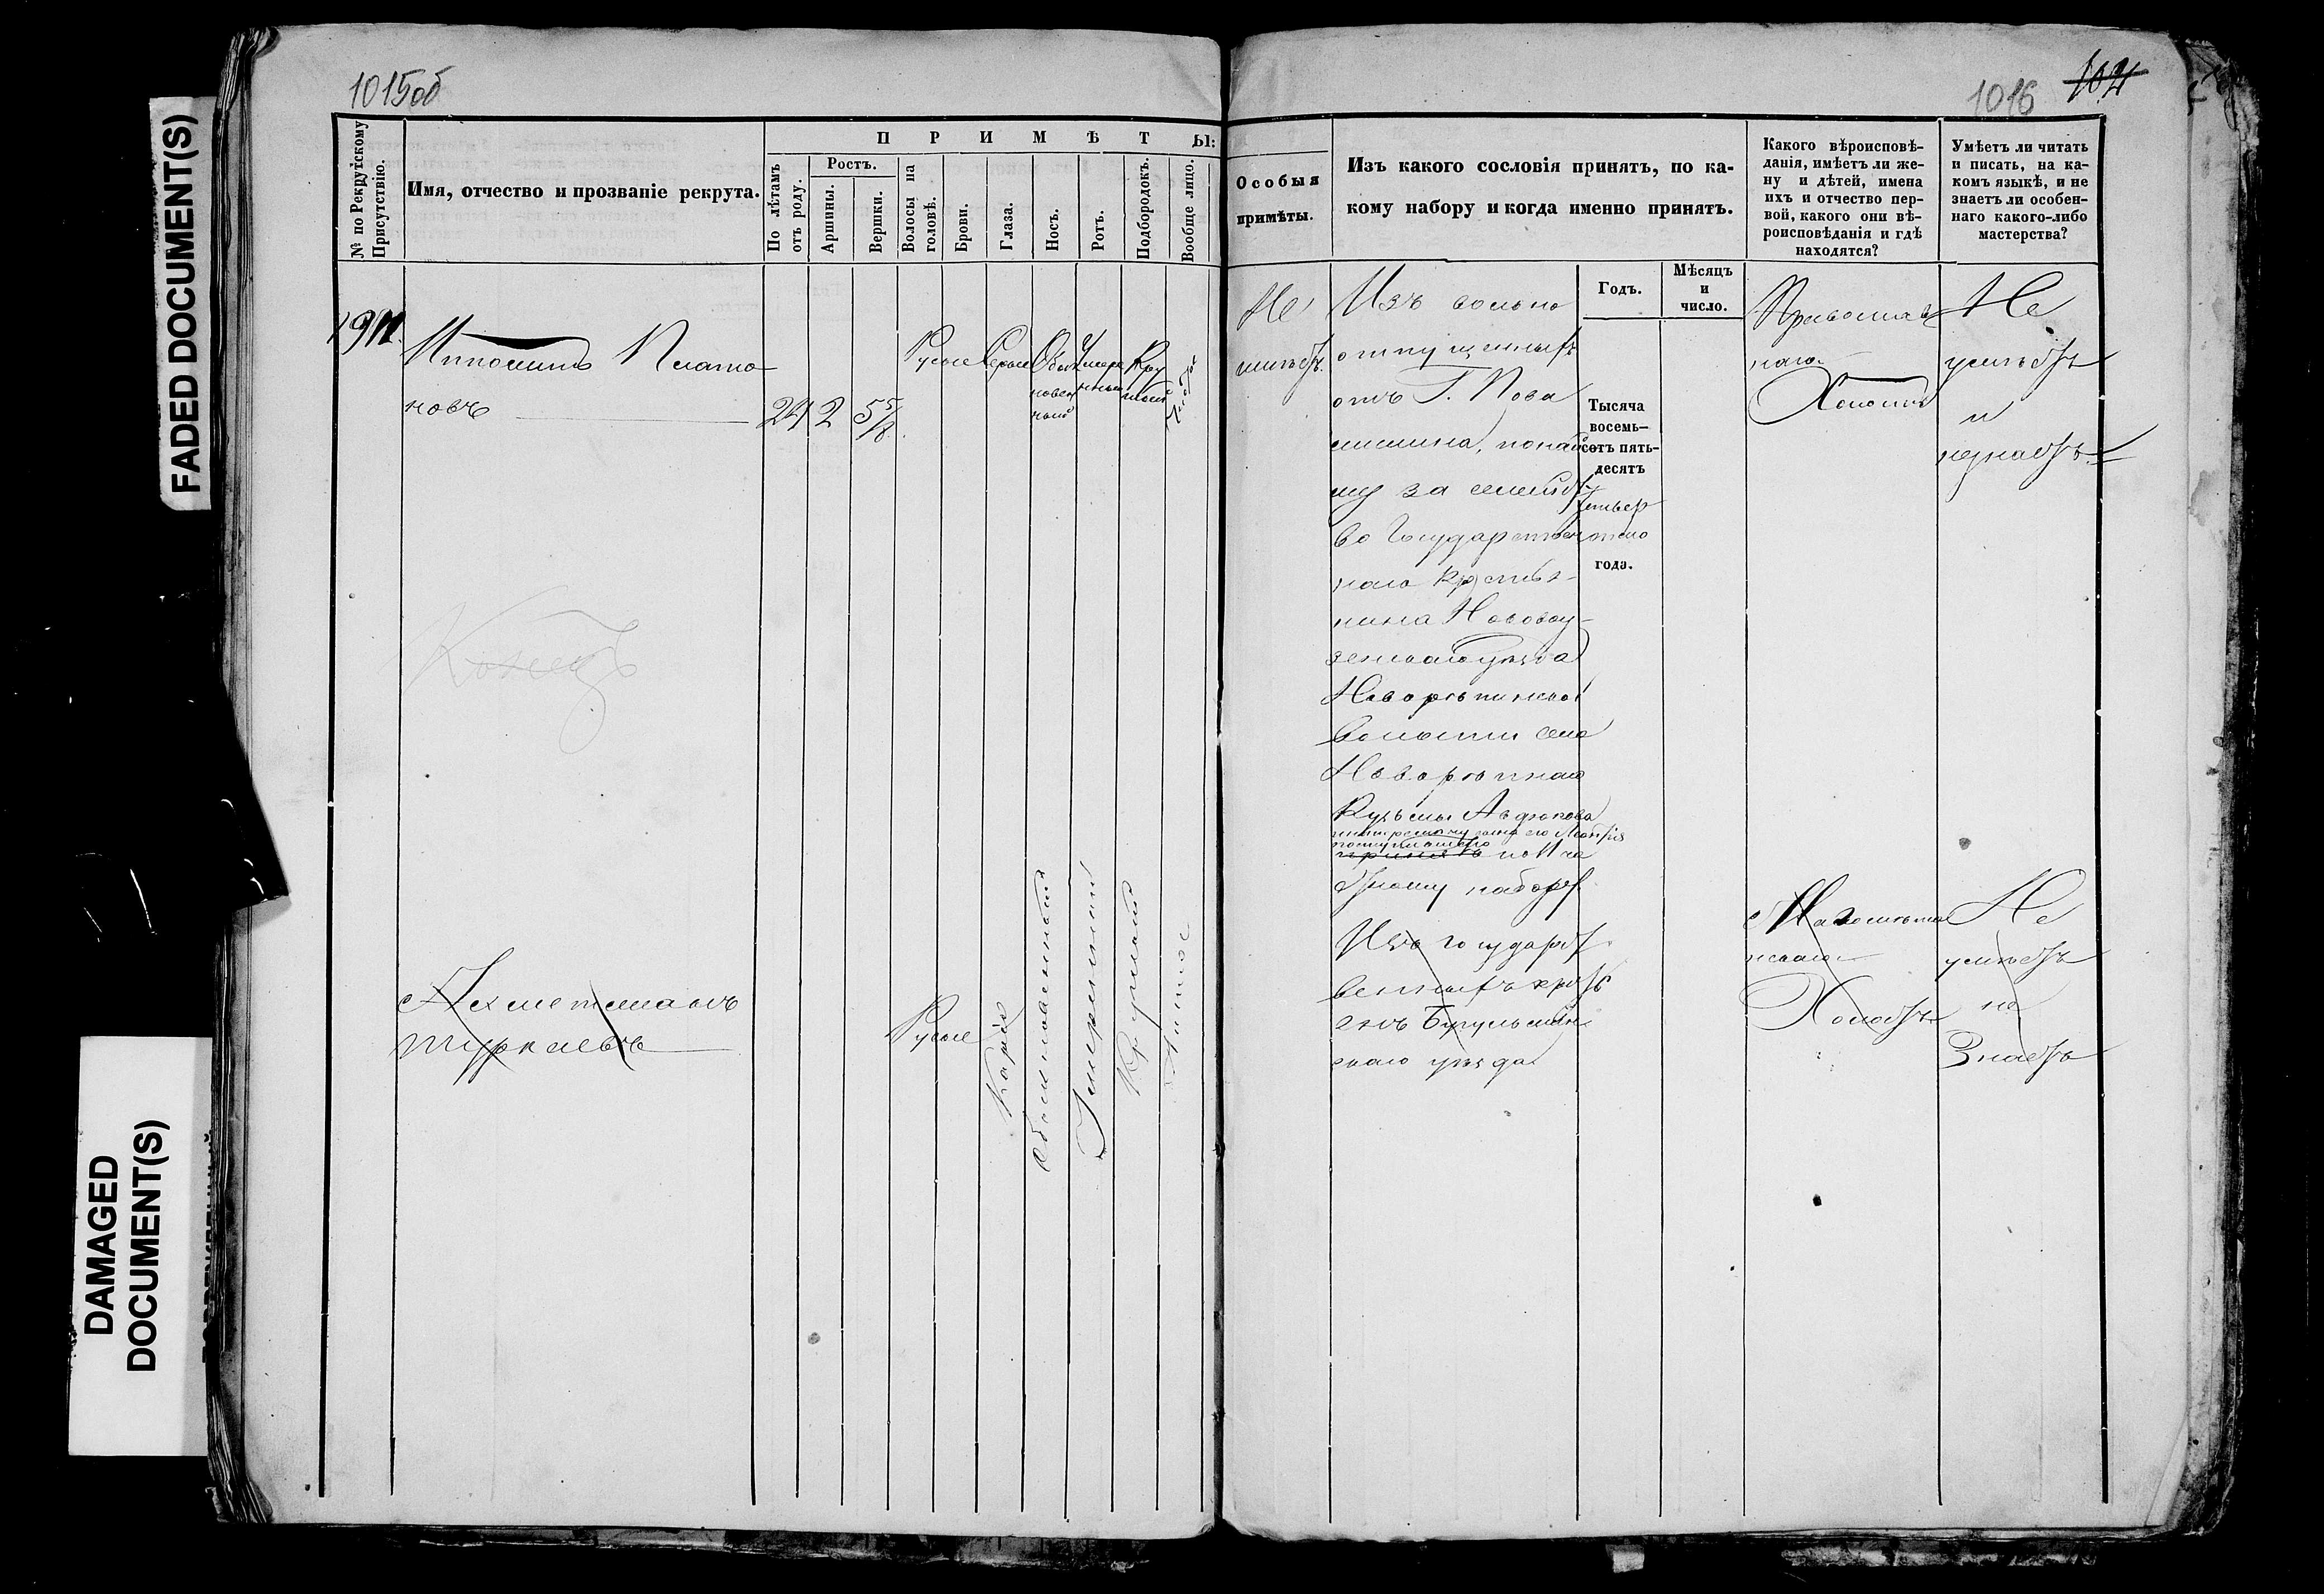 FADED DOCUMENT(S)
DAMAGED
DOCUMENT(S)
1015об
№ по Рекрутскому
Присутствію.
Имя, отчество и прозваніе рекрута.
ПРИМѢТЫ:
По лѣтамъ
отъ роду.
Ростъ.
Аршины.
Вершки.
Волосы на
головѣ.
Брови.
Глаза.
Носъ.
Ротъ.
Подбородокъ.
Вообще лицо.
Плато
новъ
24 2 5 5/8
Русые
Серые
Обык
новен
ный
Умере
нный
Кру
глый
Чистое
Конецъ
Ахмет
Русые
Каріе
Обыкновенный
Умеренный
Круглый
Чистое
1016 104
Особыя
примѣты.
Изъ какого сословія принятъ, по ка-
кому набору и когда именно принятъ.
Какого вѣроисповѣ-
данія, имѣетъ ли же-
ну и дѣтей, имена
ихъ и отчество пер-
вой, какого они вѣ-
роисповѣданія и гдѣ
находятся?
Умѣетъ ли читать
и писать, на ка-
комъ языкѣ, и не
знаетъ ли особен-
наго какого-либо
мастерства?
Годъ.
Мѣсяцъ
и
число.
Не
имѣетъ.
Изъ вольно
отпущенныхъ
отъ Г. Пова
лишина, по най
му за семейст
во Государствен
наго Крестья-
нина Новооу-
зенскаго уѣзда
Новорѣпинской
Волости села
Новорѣпнаго
Кузьмы
по 11 ча
стному набору
Тысяча
восемь-
сотъ пять-
десятъ
четвер
таго
года.
Православ
наго
Холостъ
Не
умѣетъ
и
незнаетъ.
Изъ государст
венныхъ кресть
янъ Бугульмин
скаго уѣзда
Магомета
нскаго
Холостъ
Не
умѣетъ
не
Знаетъ